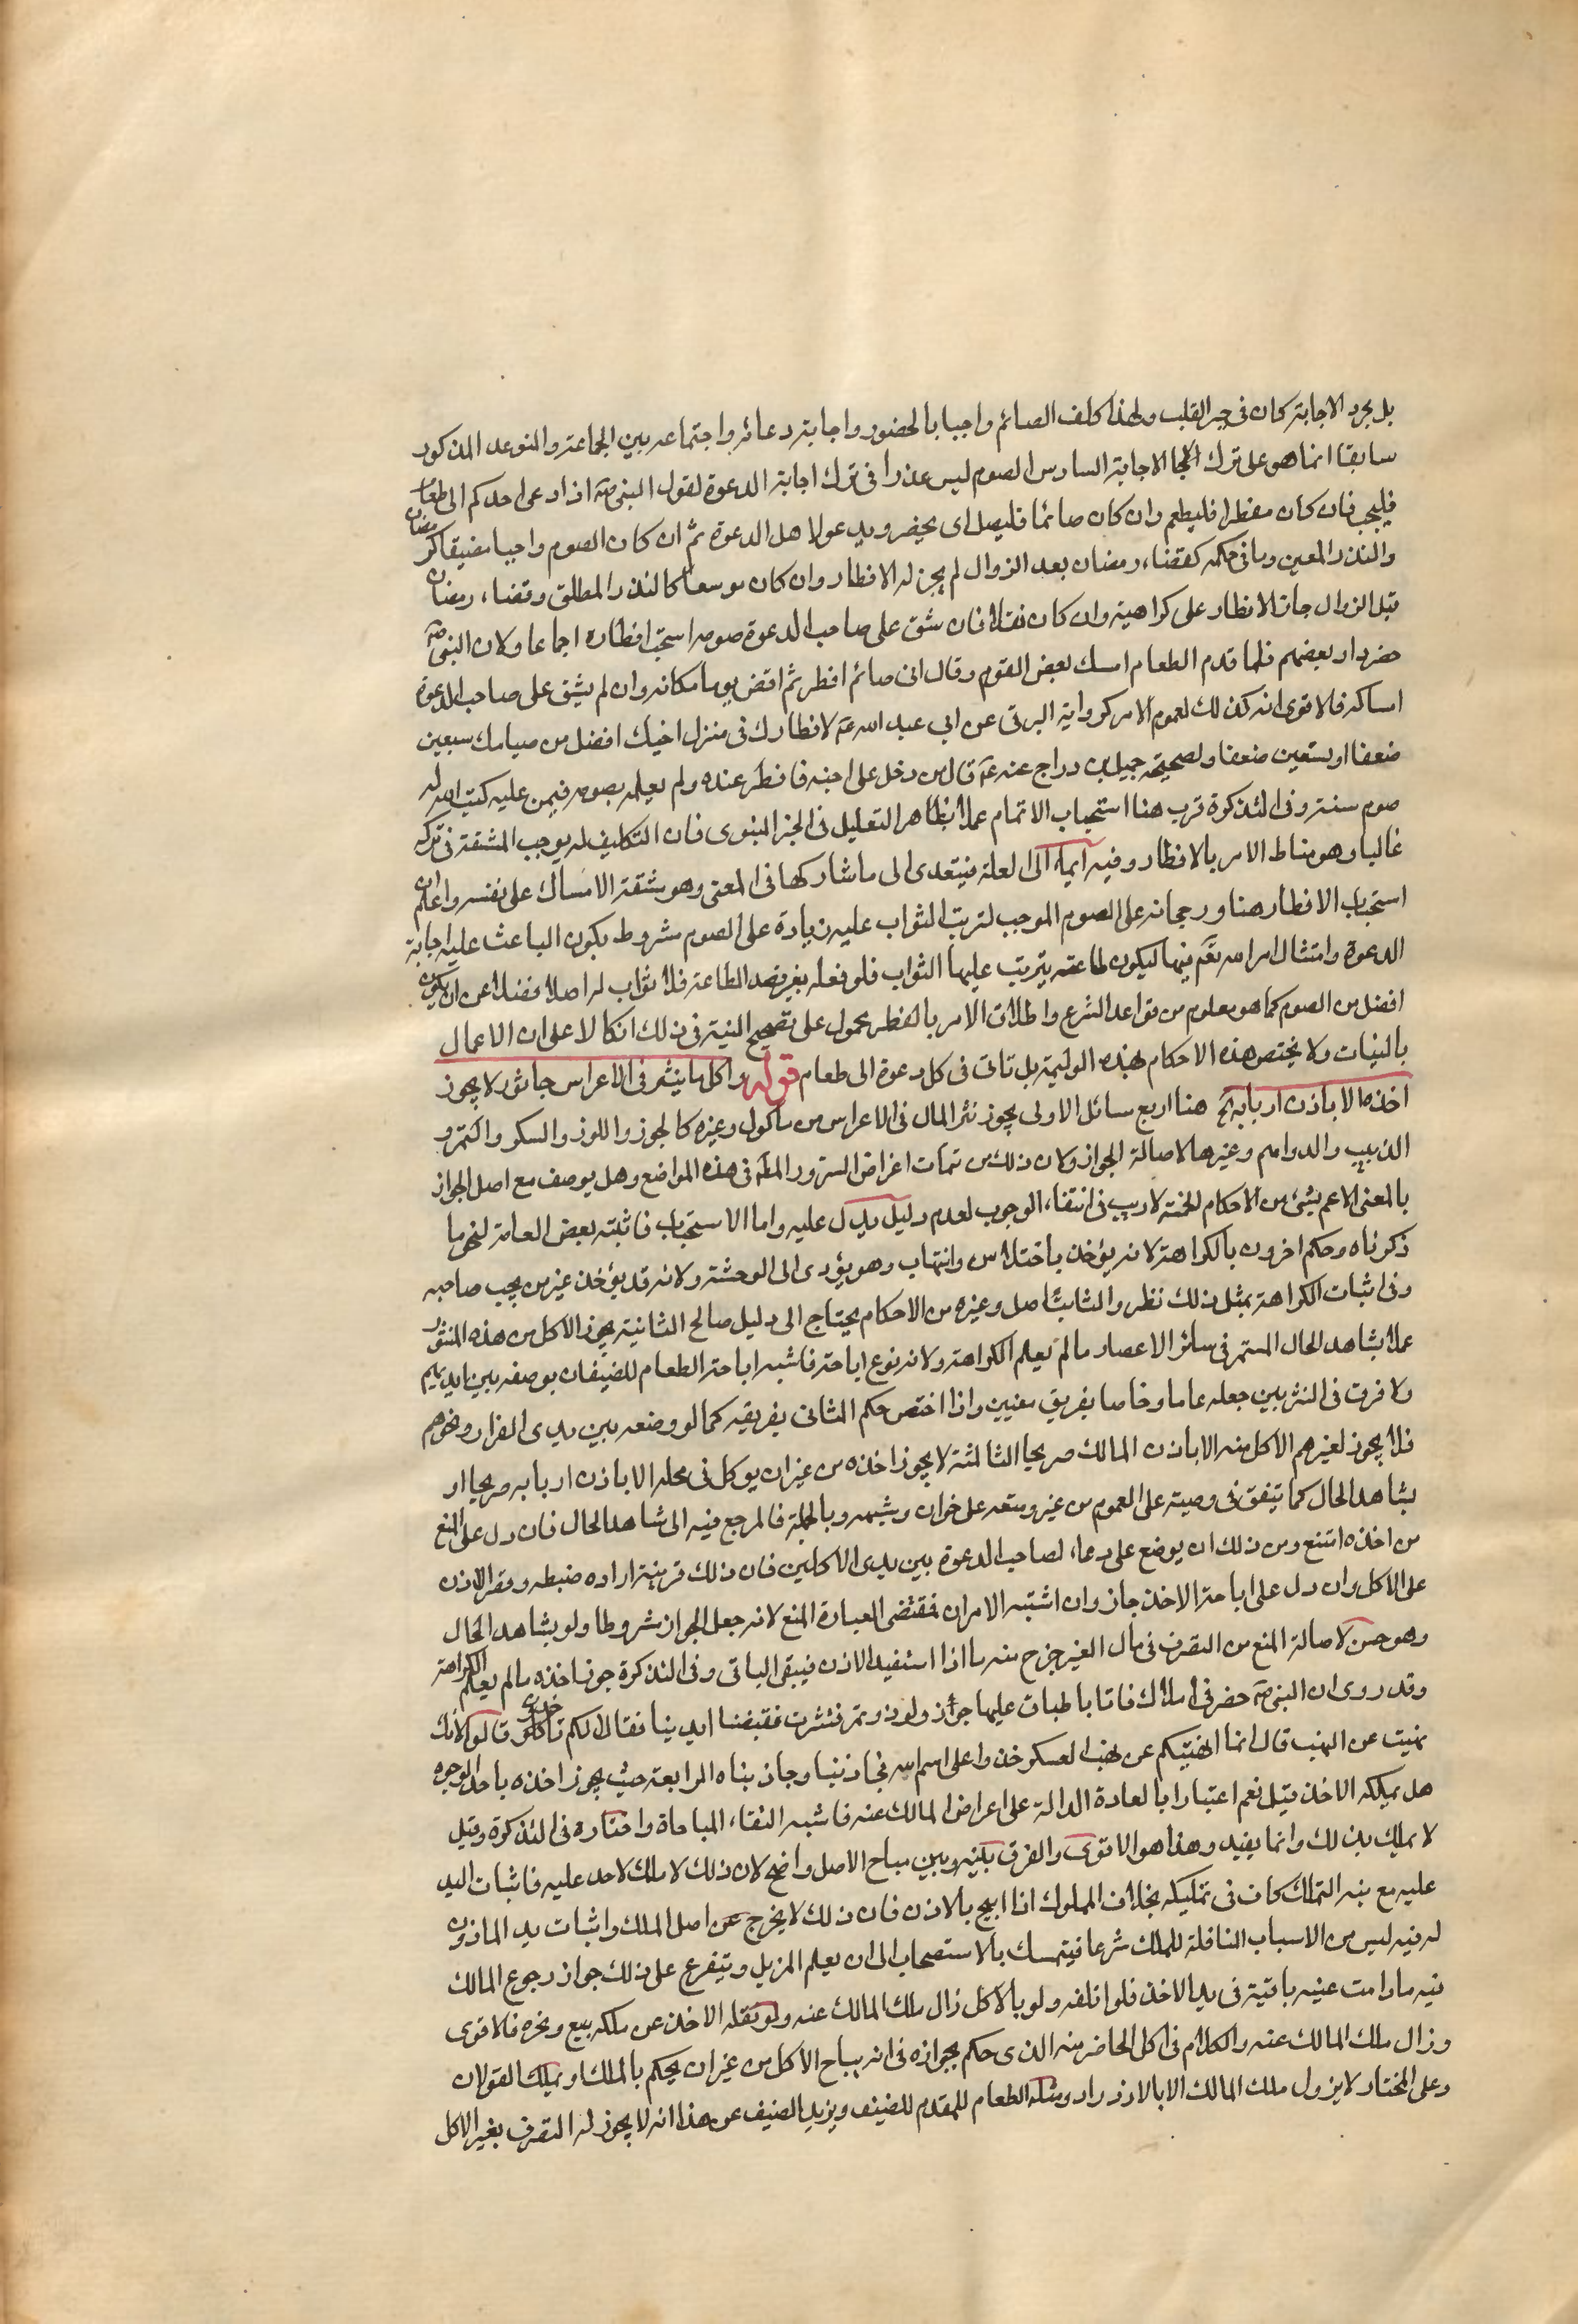 بل مجرد الاجابة كان في جبر القلب ولهذا كلف الصائم واجبا بالحضور واجابة دعائه واجتماعه بين الجماعة والتوعد المذكور
سابقا انما هو على ترك الاجابة السادس الصوم ليس عذرا في ترك اجابة الدعوة لقول النبي صه اذا دعى احدكم الى طعام
فليجب فان كان مفطرا فليطعم وان كان صائما فليصل اى يحضر ويدعو لاهل الدعوة ثم ان كان الصوم واجبا مضيقا كرمضان
والنذر المعين وما في حكمه كقضاء رمضان بعد الزوال لم يجز له الافطار وان كان موسعا كالنذر المطلق وقضاء رمضان
قبل الزوال جاز الافطار على كراهية وان كان نفلا فان شق على صاحب الدعوة صومه استحب افطاره اجماعا ولان النبي صه
حضر دار بعضهم فلما قدم الطعام امسك بعض القوم وقال انى صائم افطر ثم اقض يوما مكانه وان لم يشق على صاحب الدعوة
امساكه فالاقوى انه كذلك لعموم الامر كرواية البرقى عن ابى عبد الله عه لافطارك في منزل اخيك افضل من صيامك سبعين
ضعفا او تسعين ضعفا ولصحيحة جميل بن دراج عنه عه قال من دخل على اخيه فافطر عنده ولم يعلمه بصومه فيمن عليه كتب الله له
صوم سنة وفي التذكرة قرب هنا استحباب الاتمام عملا بظاهر التعليل في الخبر النبوى فان التكليف له يوجب المشقة في تركه
غالبا وهو مناط الامر بالافطار وفيه ايماء الى العلة فيتعدى الى ما شاركها في المعنى وهو مشقة الامساك على نفسه واعلم ان
استحباب الافطار هنا ورجحانه على الصوم الموجب لترتب الثواب عليه زيادة على الصوم مشروط بكون الباعث عليه اجابة
الدعوة وامتثال امر الله تعم فيها ليكون طاعته يترتب عليها الثواب فلو فعله بغير قصد الطاعة فلا ثواب له اصلا فضلا عن ان يكون
افضل من الصوم كما هو معلوم من قواعد الشرع واطلاق الامر بالفطر محمول على تصحيح النية في ذلك اتكالا على ان الاعمال
بالنيات ولا يختص هذه الاحكام بهذه الوليمة بل تاتى في كل دعوة الى طعام قوله واكل ما ينثر في الاعراس جائز ولا يجوز
اخذه الا باذن اربابه آه هنا اربع مسائل الاولى يجوز نثر المال في الاعراس من ماكول وغيره كالجوز واللوز والسكر والتمر و
الزبيب والدراهم وغيرها لاصالة الجواز ولان ذلك من تمات اغراض السرور المط في هذه المواضع وهل يوصف مع اصل الجواز
بالمعنى الاعم بشئ من الاحكام الخمسة لا ريب في انتفاء الوجوب لعدم دليل يدل عليه واما الاستحباب فاثبته بعض العامة لنحو ما
ذكرناه وحكم اخرون بالكراهة لانه يؤخذ باختلاس وانتهاب وهو يؤدى الى الوحشة ولانه قد يؤخذ غير من يحب صاحبه
وفي اثبات الكراهة بمثل ذلك نظر والثابت اصل وغيره من الاحكام يحتاج الى دليل صالح الثانية يجوز الاكل من هذه المنثور
عملا بشاهد الحال المستمر في سائر الاعصار ما لم يعلم الكراهة ولانه نوع اباحة فاشبه اباحة الطعام للضيفان بوضعه بين ايديهم
ولا فرق في النثر بين جعله عاما وخاصا بفريق معينين واذا اختص حكم الثانى بفريقه كما لو وضعه بين يدى القراء ونحوهم
فلا يجوز لغيرهم الاكل منه الا باذن المالك صريحا الثالثة لا يجوز اخذه من غير ان يوكل في محله الا باذن اربابه صريحا او
بشاهد الحال كما يتفق في وصية على العموم من غير وضعه على خوان وشبهه وبالجملة فالمرجع فيه الى شاهد الحال فان دل على المنع
من اخذه امتنع ومن ذلك ان يوضع على دعاء لصاحب الدعوة بين يدى الاكلين فان ذلك قرينة ارادة ضبطه وقصر الاذن
على الاكل وان دل على اباحة الاخذ جاز وان اشتبه الامران فمقتضى العبارة المنع لانه جعل الجواز مشروطا ولو بشاهد الحال
وهو حسن لاصالة المنع من التصرف في مال الغير خرج منه ما اذا استفيد الاذن فيبقى الباقى وفي التذكرة جوز اخذه ما لم يعلم الكراهة
وقد روى ان النبي صه حضر في املاك فاتا باطباق عليها جوز ولوز وتمر فنثرت فقبضنا ايدينا فقال ما لكم لا تاخذون قالوا لانك
نهيت عن النهب قال انما نهيتكم عن نهب العسكر خذوا على اسم الله فجاذبنا وجاذبناه الرابعة حيث يجوز اخذه باحد الوجوه
هل يملكه الاخذ قيل نعم اعتبارا بالعادة الدالة على اعراض المالك عنه فاشبه التقاء المباحاة واختاره في التذكرة وقيل
لا يملك بذلك وانما يفيد وهذا هو الاقوى والفرق بينه وبين مباح الاصل واضح لان ذلك لا ملك لاحد عليه فاثبات اليد
عليه مع نية التملك كاف في تمليكه بخلاف المملوك اذا ابيح بالاذن فان ذلك لا يخرج عن اصل الملك واثبات يد الماذون
له فيه ليس من الاسباب الناقلة للملك شرعا فيتمسك بالاستصحاب الى ان يعلم المزيل ويتفرع على ذلك جواز رجوع المالك
فيه ما دامت عينه باقية في يد الاخذ فلو اتلفه ولو بالاكل زال ملك المالك عنه ولو نقله الاخذ عن ملكه ببيع ونحوه فالاقوى
وزال ملك المالك عنه والكلام في اكل الحاضر منه الذى حكم بجوازه في انه يباح الاكل من غير ان يحكم بالملك او يملك القولان
وعلى المختار لا يزول ملك المالك الا بالازدراد ومثله الطعام المقدم للضيف ويزيد الضيف عن هذا انه لا يجوز له التصرف بغير الاكل